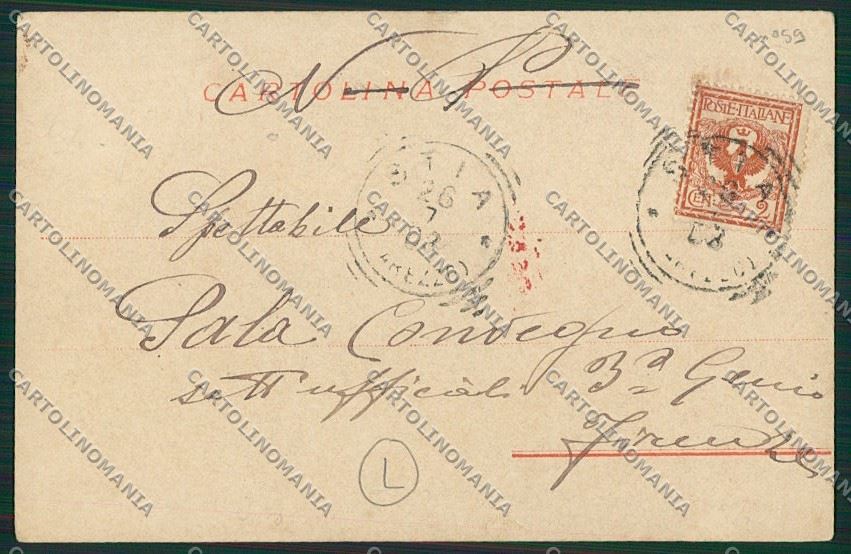 5059
CARTOLINA POSTALE
N
POSTE·ITALIANE
CENT. 2
STIA
26
7
03
(AREZZO)
STIA
26
7
03
(AREZZO)
Spettabile
Sala Convegno
sott'ufficiali 3º Genio
Firenze
L
CARTOLINOMANIA